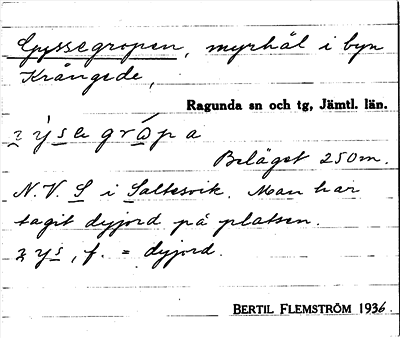 Gyssegropen, myrhål i byn
Krångede,
Ragunda sn och tg, Jämtl. län.
Beläget 250 m.
N.V. S i Saltsvik. Man har
tagit dyjord på platsen.
f. = dyjord.
BERTIL FLEMSTRÖM 1936.